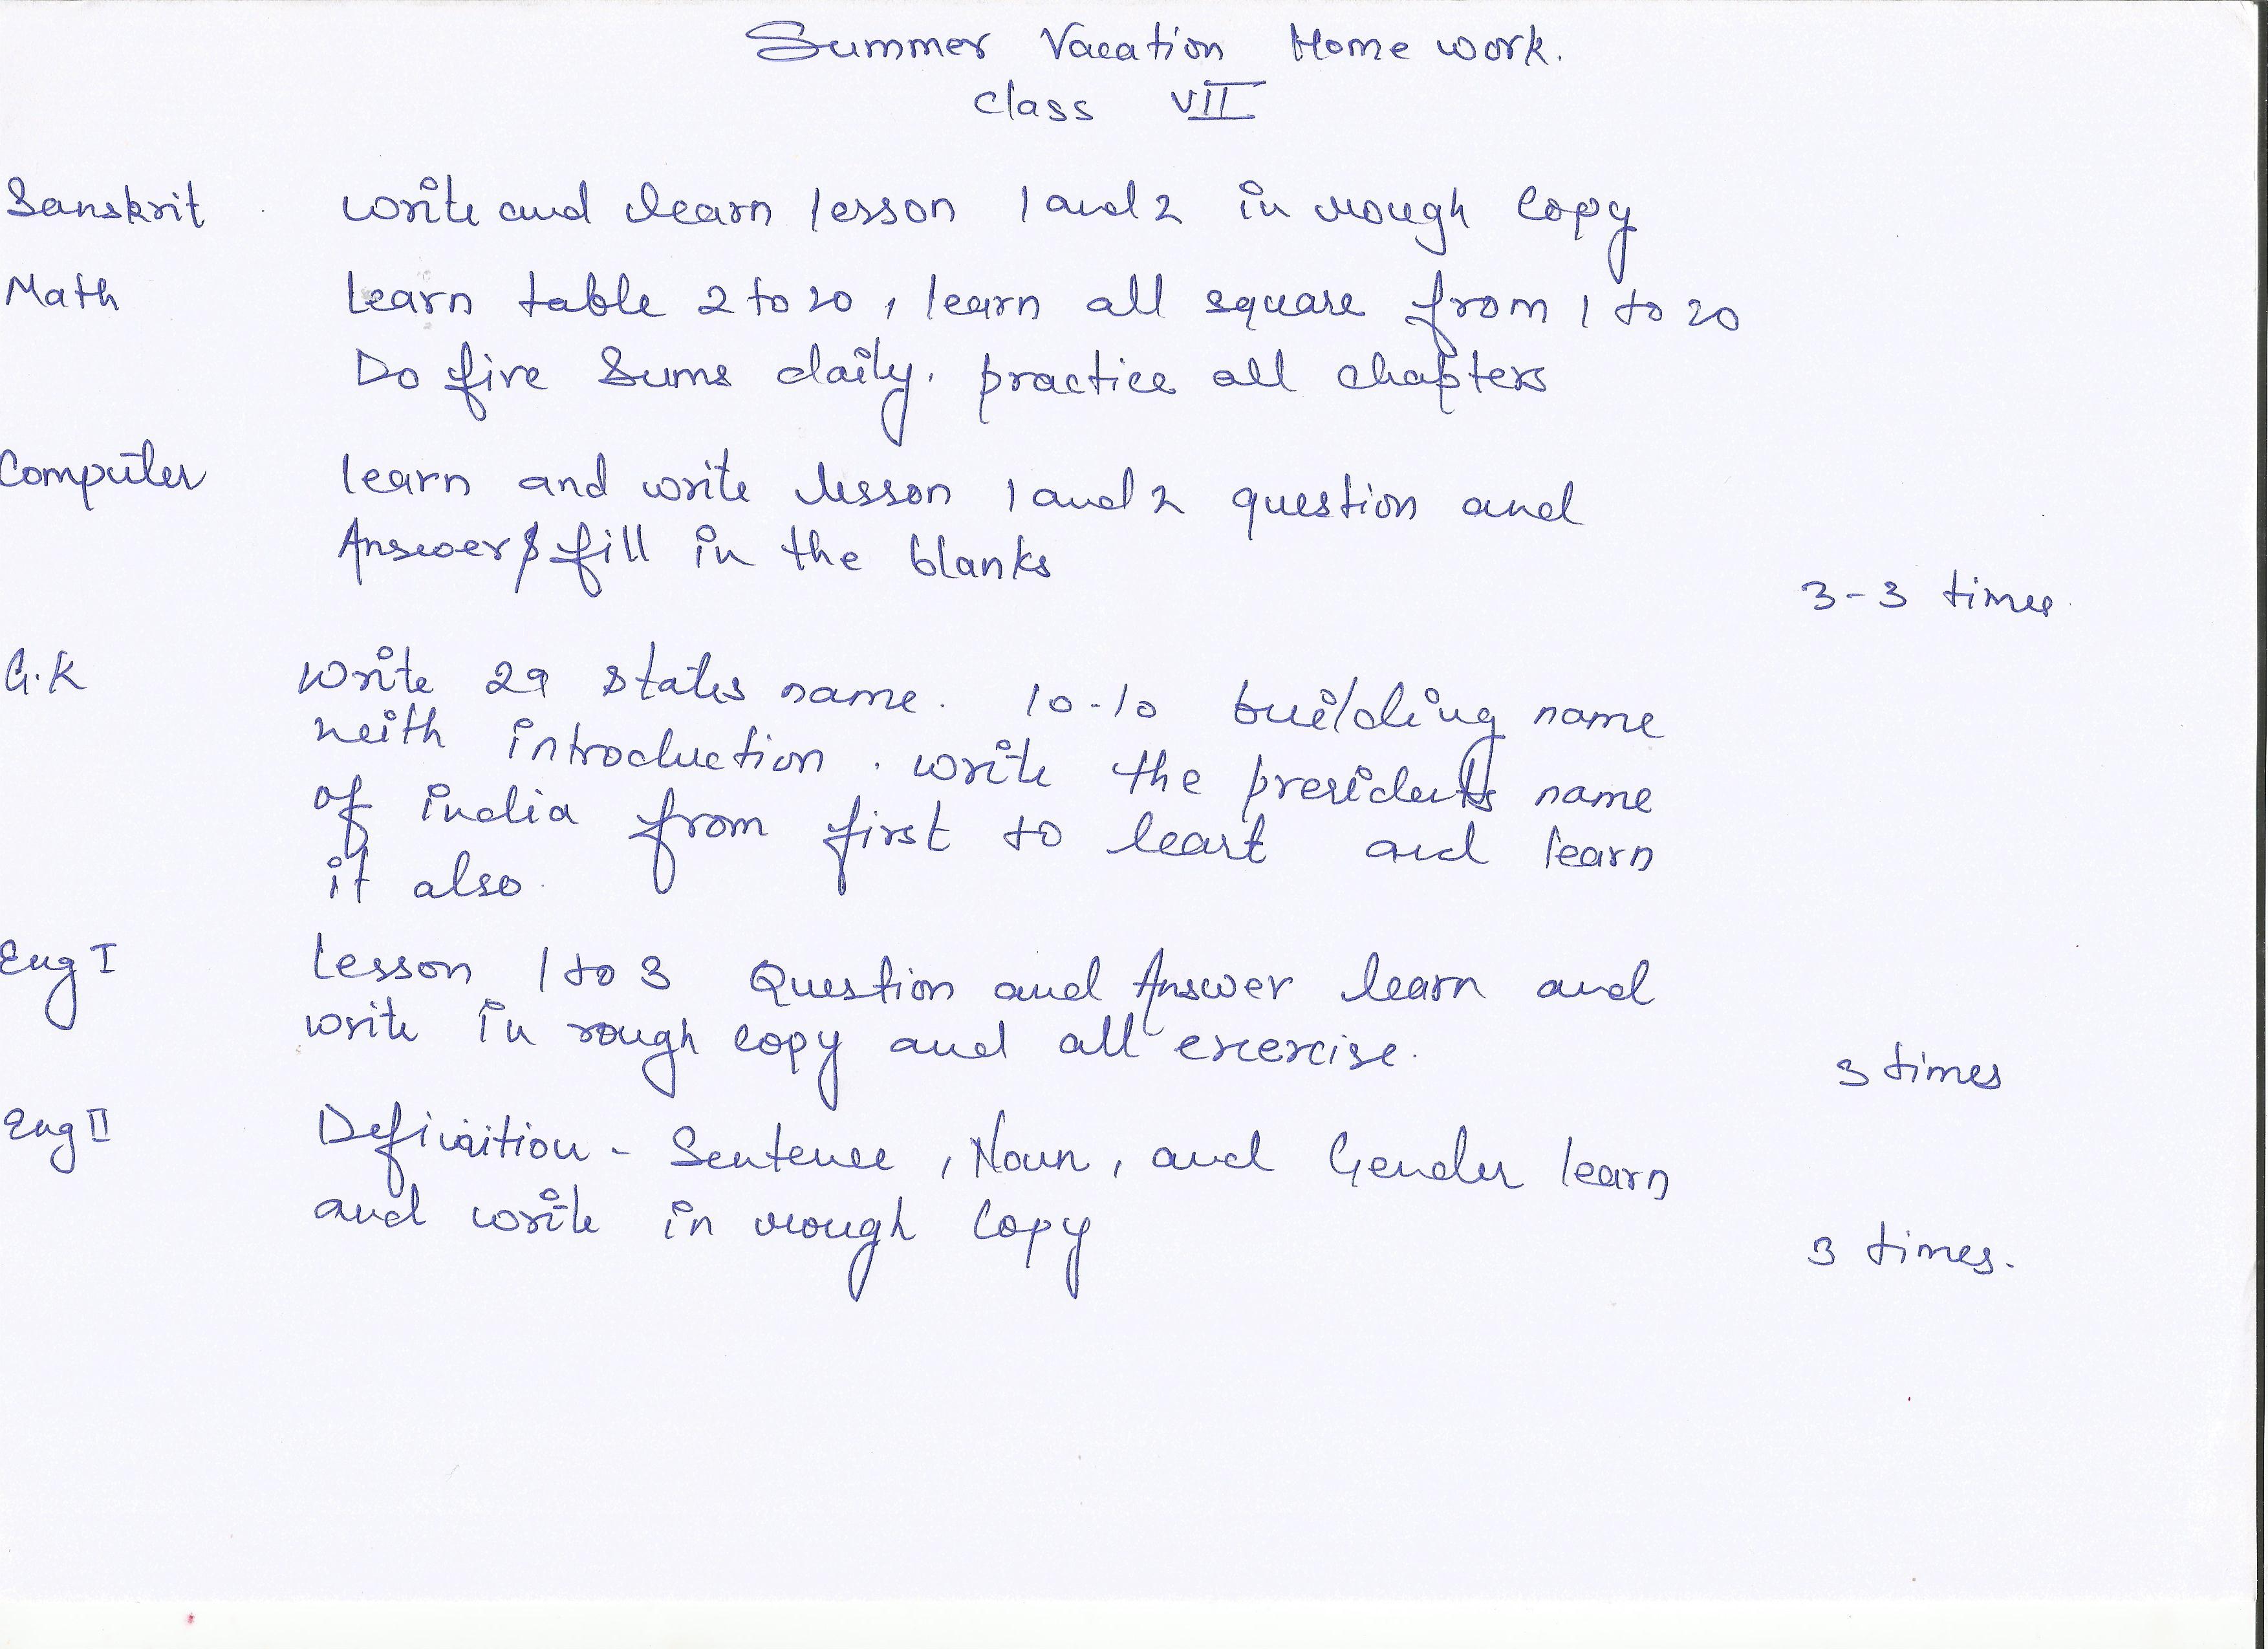 Summer Vacation Home work.
class VII
Sanskrit write and learn lesson 1 and 2 in rough copy
Math learn table 2 to 20, learn all square from 1 to 20
Do five sums daily. practice all chapters
Computer learn and write lesson 1 and 2 question and
Answer & fill in the blanks
3-3 times
G.K Write 29 states name. 10-10 building name
with introduction. write the presidents name
of india from first to last and learn
it also.
Eng I Lesson 1 to 3 Question and Answer learn and
write in rough copy and all excercise.
3 times
Eng II Definition - Sentence, Noun, and Gender learn
and write in rough copy
3 times.